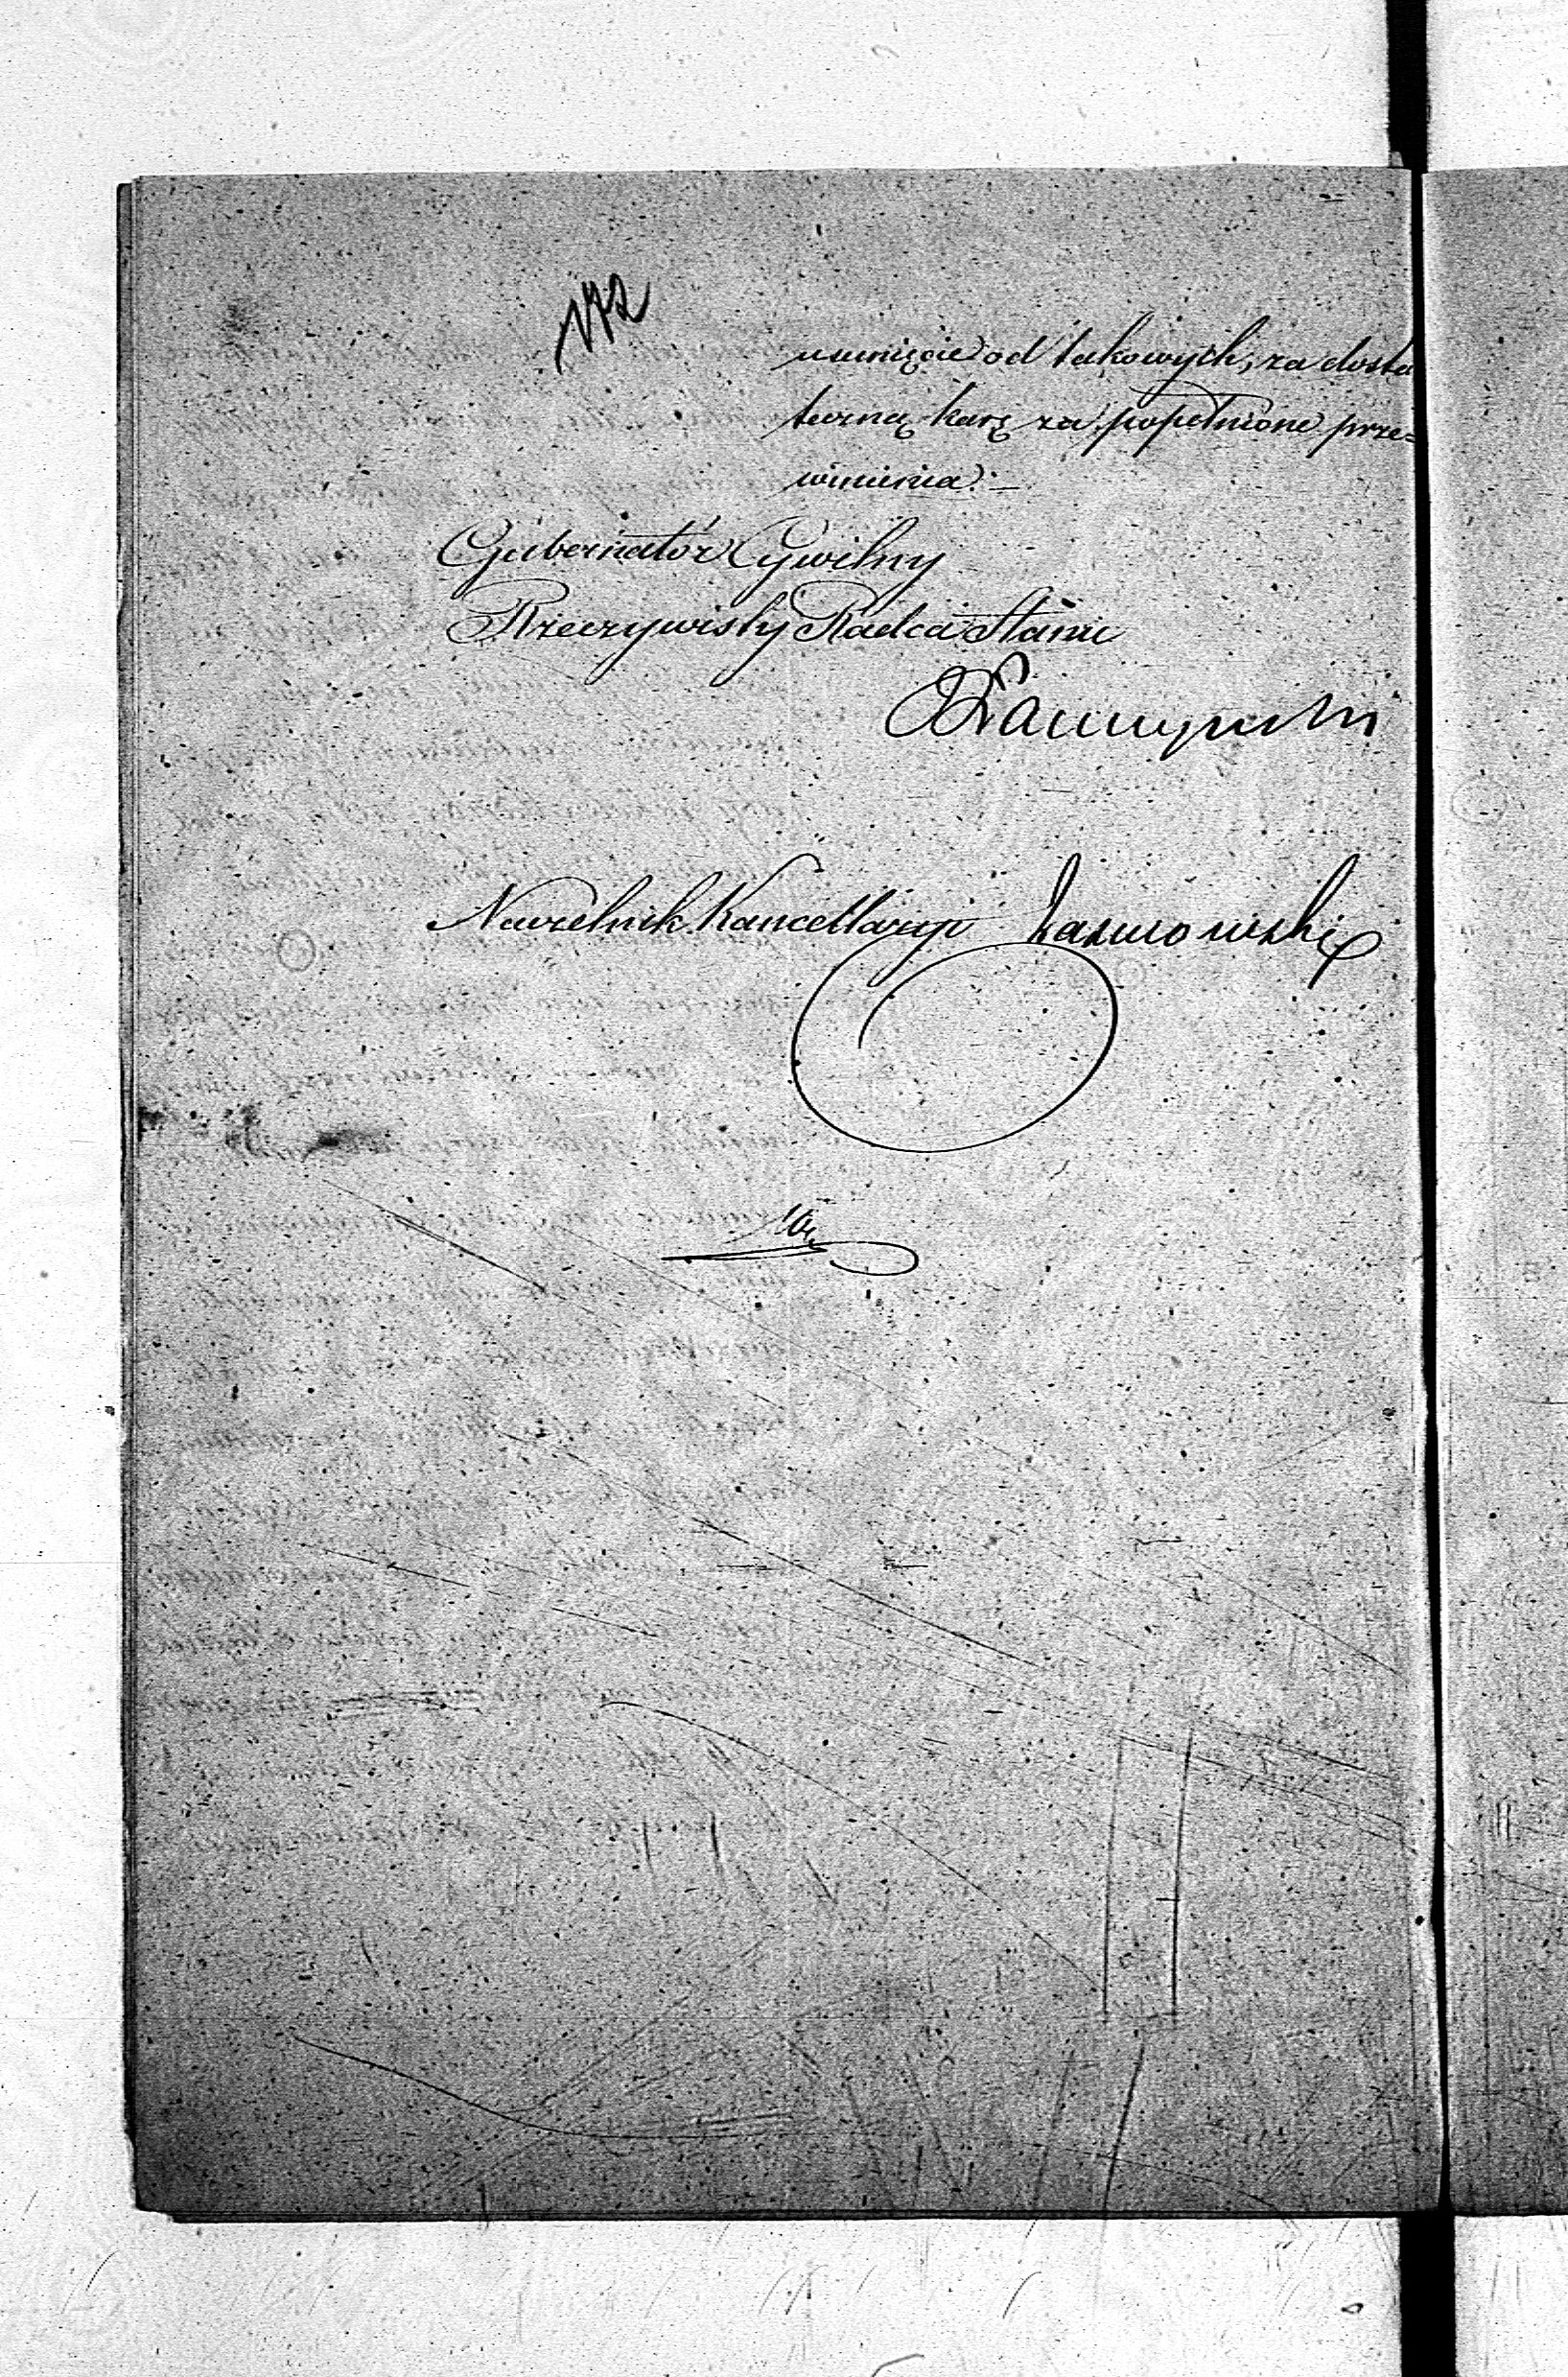 172
usunięcie od takowych, za dosta
teczną karę za popełnione prze=
winienia. —
Gubernator Cywilny
Rzeczywisty Radca Stanu
Naczelnik Kancellaryi